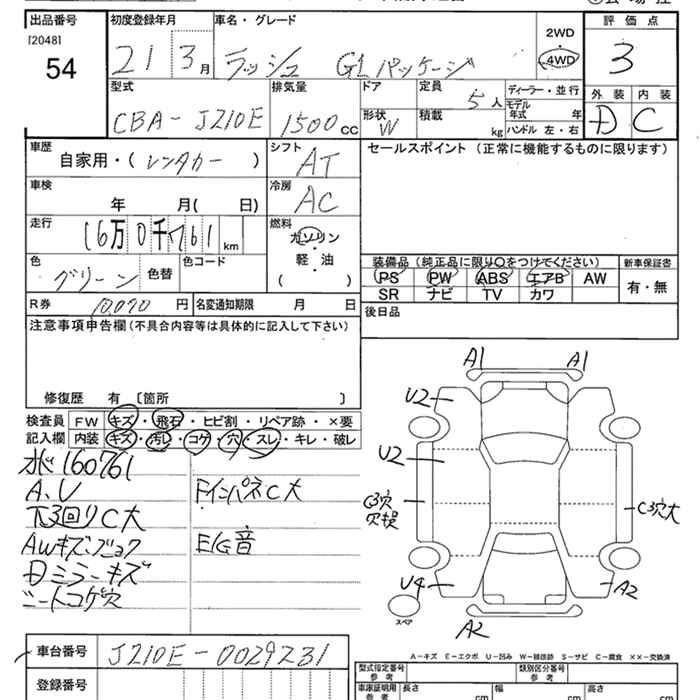 出品番号
[2048]
54
初度登録年月
21 3月
車名・グレード
ラッシュ G1パッケージ
2WD
4WD
評価点
3
外装 内装
D C
型式
CBA-J210E
排気量
1500cc
ドア
形状
W
定員
5人
積載
kg
ディーラー・並行
モデル年式 年
ハンドル 左・右
車歴
自家用・(レンタカー)
シフト
AT
車検
年 月( 日)
冷房
AC
走行
16万0千761km
燃料
ガソリン
・
軽・油
( )
色
グリーン
色替
色コード
R券
10,070円
名変通知期限 月 日
セールスポイント(正常に機能するものに限ります)
装備品(純正品に限り○をつけてください)
PS PW ABS エアB AW
SR ナビ TV カワ
新車保証書
有・無
後日品
注意事項申告欄(不具合内容等は具体的に記入して下さい)
修復歴 有[箇所 ]
検査員記入欄
FW キズ・飛石・ヒビ割・リペア跡・×要
内装 キズ・汚レ・コゲ・穴・スレ・キレ・破レ
水ぐ160761
A、U
下3回りC大
AWキズ、ブヨク
Dミラーキズ
シートコゲ穴
FインパネC大
E/G音
A1 A1
U2
U2
C3穴
穴損
C3穴大
U4
A2
A2
スペア
A-キズ E-エクボ U-凹み W-補修跡 S-サビ C-腐食 ××-交換済
車台番号
J210E-0029231
登録番号
型式指定番号
参考
類別区分番号
参考
車庫証明用
参考
長さ
cm
幅
cm
高さ
cm